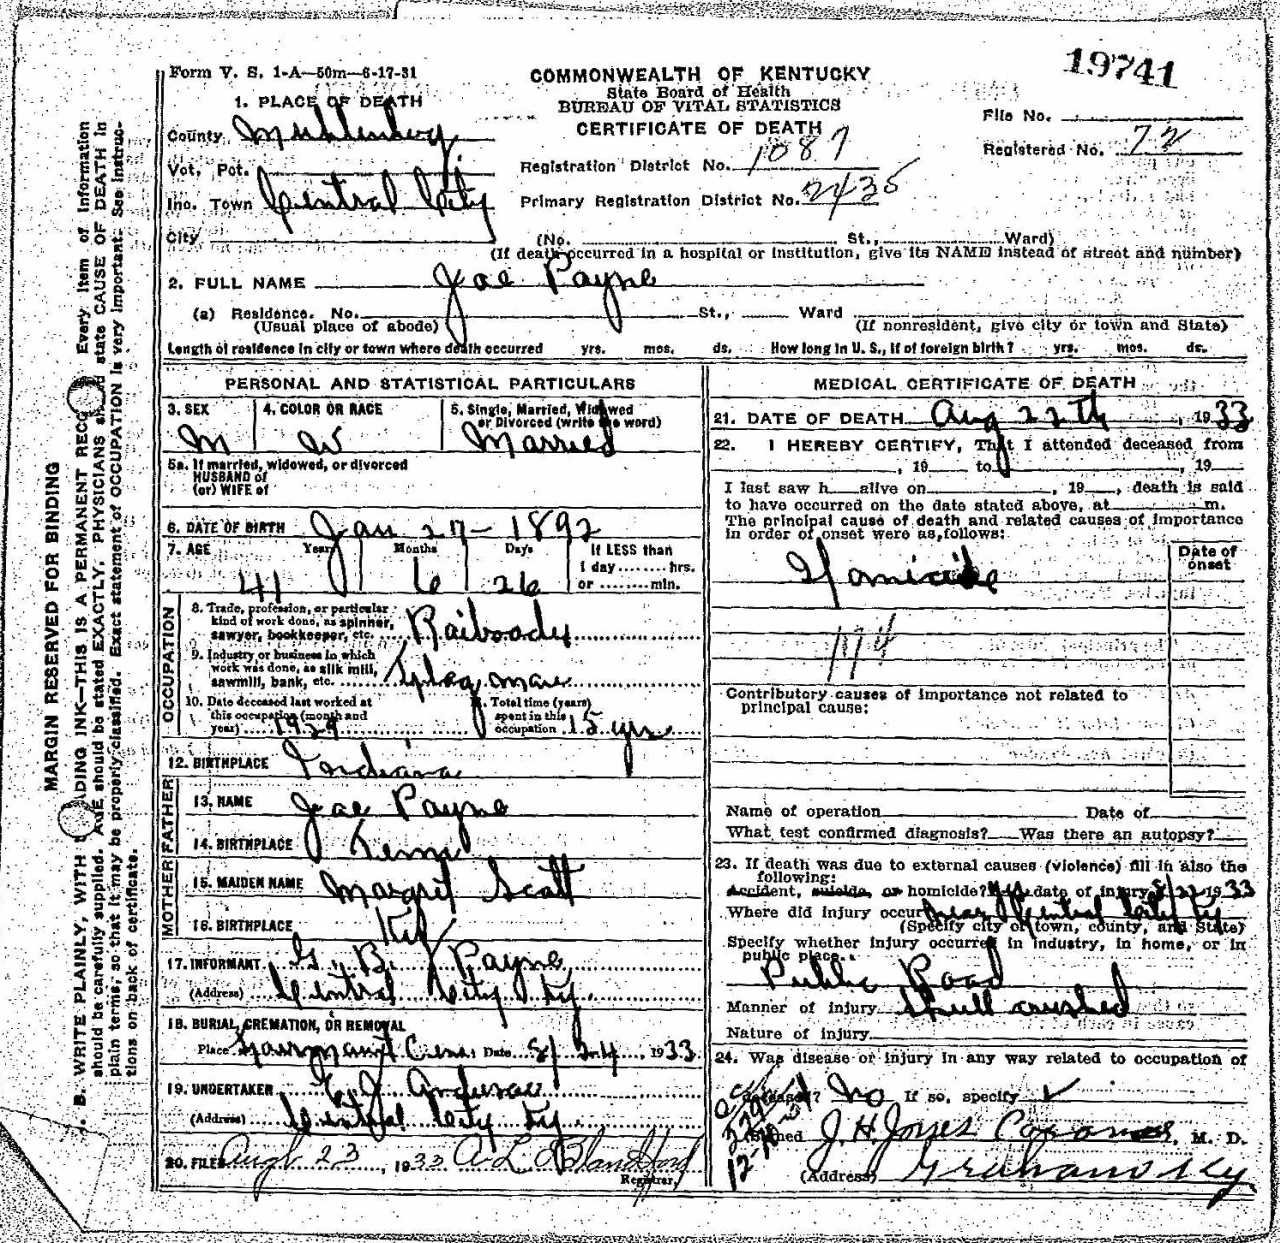 19741
Form V. S. 1-A—50m—6-17-31
COMMONWEALTH OF KENTUCKY
State Board of Health
BUREAU OF VITAL STATISTICS
CERTIFICATE OF DEATH
File No.
Registered No. 72
1. PLACE OF DEATH
County Muhlenberg
Vot. Pct.
Inc. Town Central City
City
Registration District No. 1087
Primary Registration District No. 2435
(No. St., Ward)
(If death occurred in a hospital or institution, give its NAME instead of street and number)
2. FULL NAME Joe Payne
(a) Residence. No. St., Ward
(Usual place of abode) (If nonresident, give city or town and State)
Length of residence in city or town where death occurred yrs. mos. ds. How long in U. S., if of foreign birth? yrs. mos. ds.
PERSONAL AND STATISTICAL PARTICULARS
3. SEX M
4. COLOR OR RACE W
5. Single, Married, Widowed
or Divorced (write the word)
Married
5a. If married, widowed, or divorced
HUSBAND of
(or) WIFE of
6. DATE OF BIRTH Jan 27-1892
7. AGE Years Months Days If LESS than
1 day ........ hrs.
41 6 26 or ........ min.
OCCUPATION
8. Trade, profession, or particular
kind of work done, as spinner,
sawyer, bookkeeper, etc.
9. Industry or business in which
work was done, as silk mill,
sawmill, bank, etc. Flagman
10. Date deceased last worked at
this occupation (month and
year) 1929
11. Total time (years)
spent in this
occupation 15 yrs
12. BIRTHPLACE Indiana
FATHER
13. NAME Joe Payne
14. BIRTHPLACE
MOTHER
15. MAIDEN NAME Margret Scott
16. BIRTHPLACE Ky
17. INFORMANT G. B. Payne
(Address) Central City Ky.
18. BURIAL, CREMATION, OR REMOVAL
Place Cem. Date 8/24, 1933
19. UNDERTAKER
(Address) Central City Ky.
20. FILED Aug 23, 1933 A L Blandford
Registrar,
MEDICAL CERTIFICATE OF DEATH
21. DATE OF DEATH Aug 22th, 1933
22. I HEREBY CERTIFY, That I attended deceased from
, 19 to , 19
I last saw h alive on , 19 , death is said
to have occurred on the date stated above, at m.
The principal cause of death and related causes of importance
in order of onset were as follows:
Date of
onset
Homicide
174
Contributory causes of importance not related to
principal cause:
Name of operation Date of
What test confirmed diagnosis? Was there an autopsy?
23. If death was due to external causes (violence) fill in also the
following:
Accident, suicide, or homicide? yes date of injury 8/22 1933
Where did injury occur near Central City Ky
(Specify city or town, county, and State)
Specify whether injury occurred in industry, in home, or in
public place.
Public Road
Manner of injury Skull crushed
Nature of injury
24. Was disease or injury in any way related to occupation of
deceased? No If so, specify
Signed J. H. Jones Coroner, M. D.
(Address) Graham Ky
MARGIN RESERVED FOR BINDING